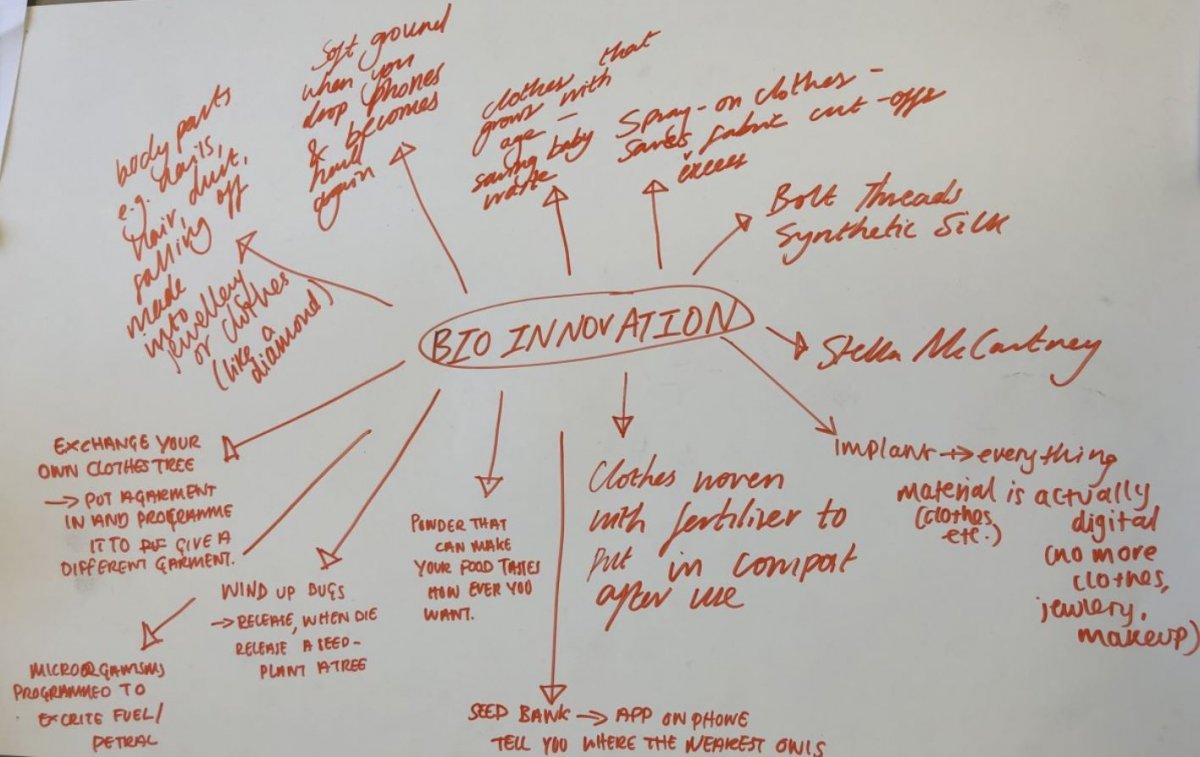 body parts
e.g. nails,
hair, dust,
falling off
made
into
jewellery
or clothes
(like a
diamond)
Soft ground
when you
drop phones
& becomes
hard
again
Clothes that
grows with
age -
saving baby
waste
Spray-on clothes -
saves fabric cut-offs
excess
Bolt Threads
Synthetic Silk
BIO INNOVATION
Stella McCartney
Implant → everything
material is actually
(clothes, digital
etc.)
(no more
clothes,
jewlery,
makeup)
EXCHANGE YOUR
OWN CLOTHES TREE
→ PUT A GARMENT
IN AND PROGRAMME
IT TO GIVE A
DIFFERENT GARMENT.
WIND UP BUGS
→ RELEASE, WHEN DIE
RELEASE A SEED -
PLANT A TREE
MICROORGANISMS
PROGRAMMED TO
EXCRITE FUEL/
PETRAL
POWDER THAT
CAN MAKE
YOUR FOOD TASTES
HOW EVER YOU
WANT.
Clothes woven
with fertiliser to
put in compost
after use
SEED BANK → APP ON PHONE
TELL YOU WHERE THE NEAREST OWLS